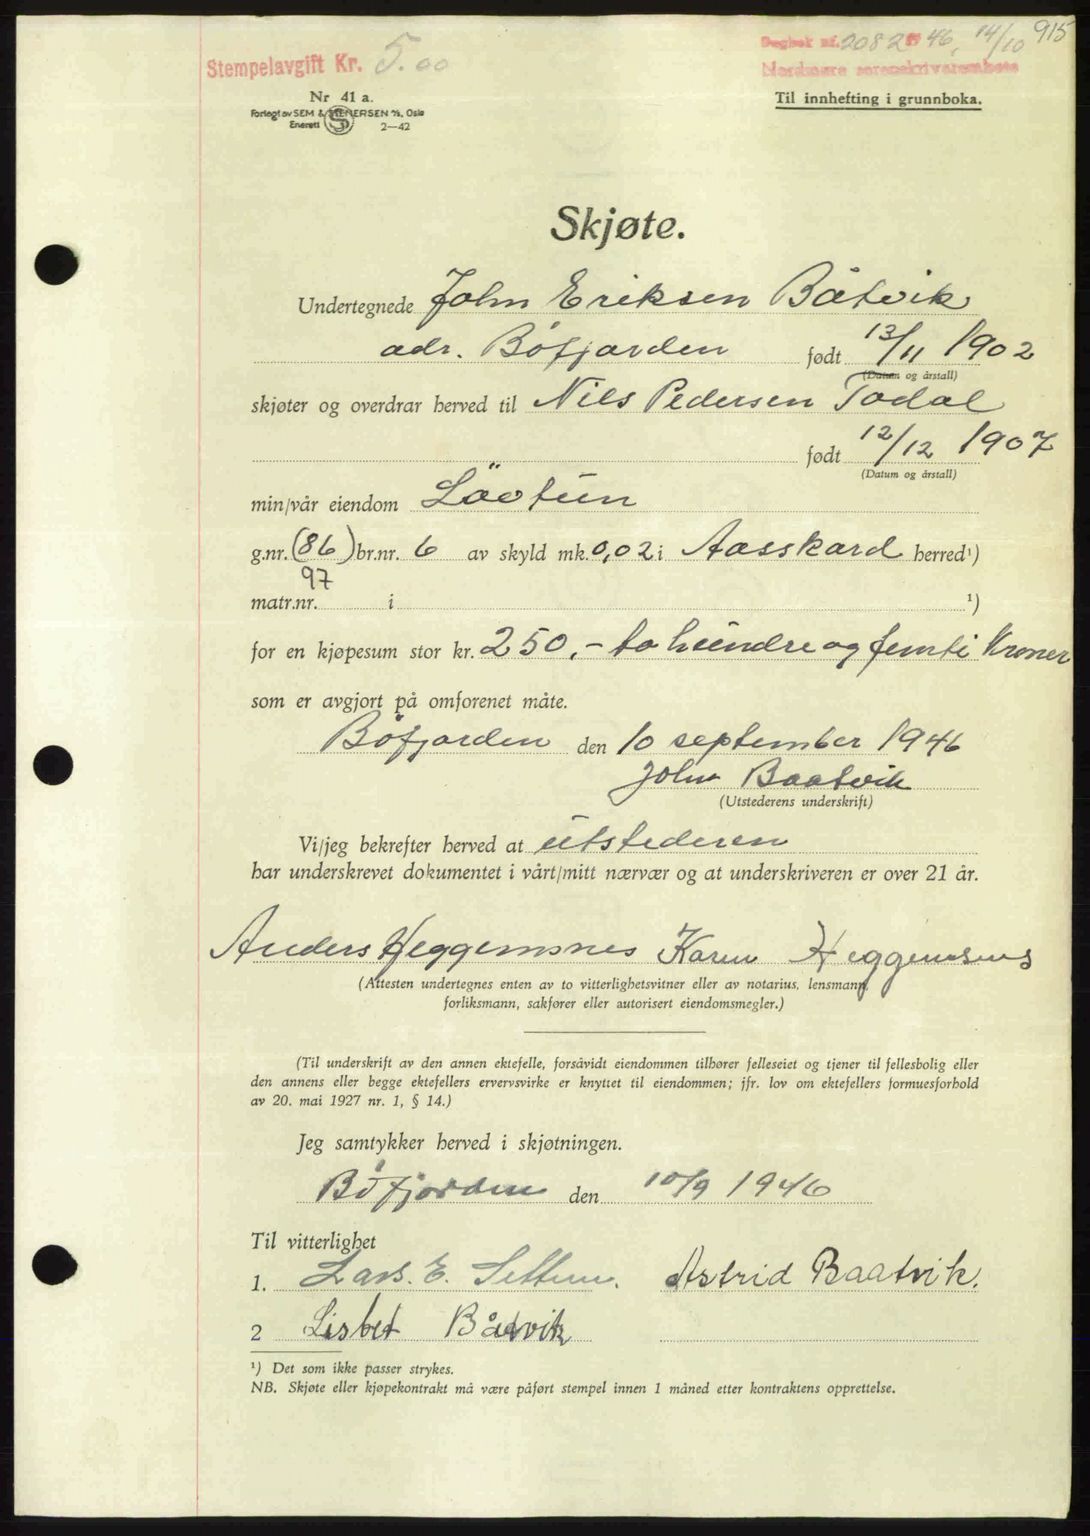 915
Stempelavgift Kr. 5.00
Dagbok nr. 2082 19 46, 14/10
Nordmøre sorenskriverembete
Nr 41 a.
Til innhefting i grunnboka.
Forlagt av SEM & STENERSEN A/S, Oslo
Enerett 2—42
Skjøte.
Undertegnede John Eriksen Båtvik
adr. Böfjorden født 13/11 1902
(Datum og årstall)
skjøter og overdrar herved til Nils Pedersen Todal
født 12/12 1907
(Datum og årstall)
min/vår eiendom Lövtun
g.nr. (86) br.nr. 6 av skyld mk. 0,02 i Aasskard herred¹)
97
matr.nr. i ¹)
for en kjøpesum stor kr. 250,- to hundre og femti Kroner
som er avgjort på omforenet måte.
Böfjorden den 10 september 1946
John Baatvik
(Utstederens underskrift)
Vi/jeg bekrefter herved at utstederen
har underskrevet dokumentet i vårt/mitt nærvær og at underskriveren er over 21 år.
Anders Heggemsnes Karen Heggemsnes
(Attesten undertegnes enten av to vitterlighetsvitner eller av notarius, lensmann,
forliksmann, sakfører eller autorisert eiendomsmegler.)
(Til underskrift av den annen ektefelle, forsåvidt eiendommen tilhører felleseiet og tjener til fellesbolig eller
den annens eller begge ektefellers ervervsvirke er knyttet til eiendommen; jfr. lov om ektefellers formuesforhold
av 20. mai 1927 nr. 1, § 14.)
Jeg samtykker herved i skjøtningen.
Böfjorden den 10/9 1946
Til vitterlighet
1. Lars. E. Settem. Astrid Baatvik.
2 Lisbet Båtvik
¹) Det som ikke passer strykes.
NB. Skjøte eller kjøpekontrakt må være påført stempel innen 1 måned etter kontraktens opprettelse.